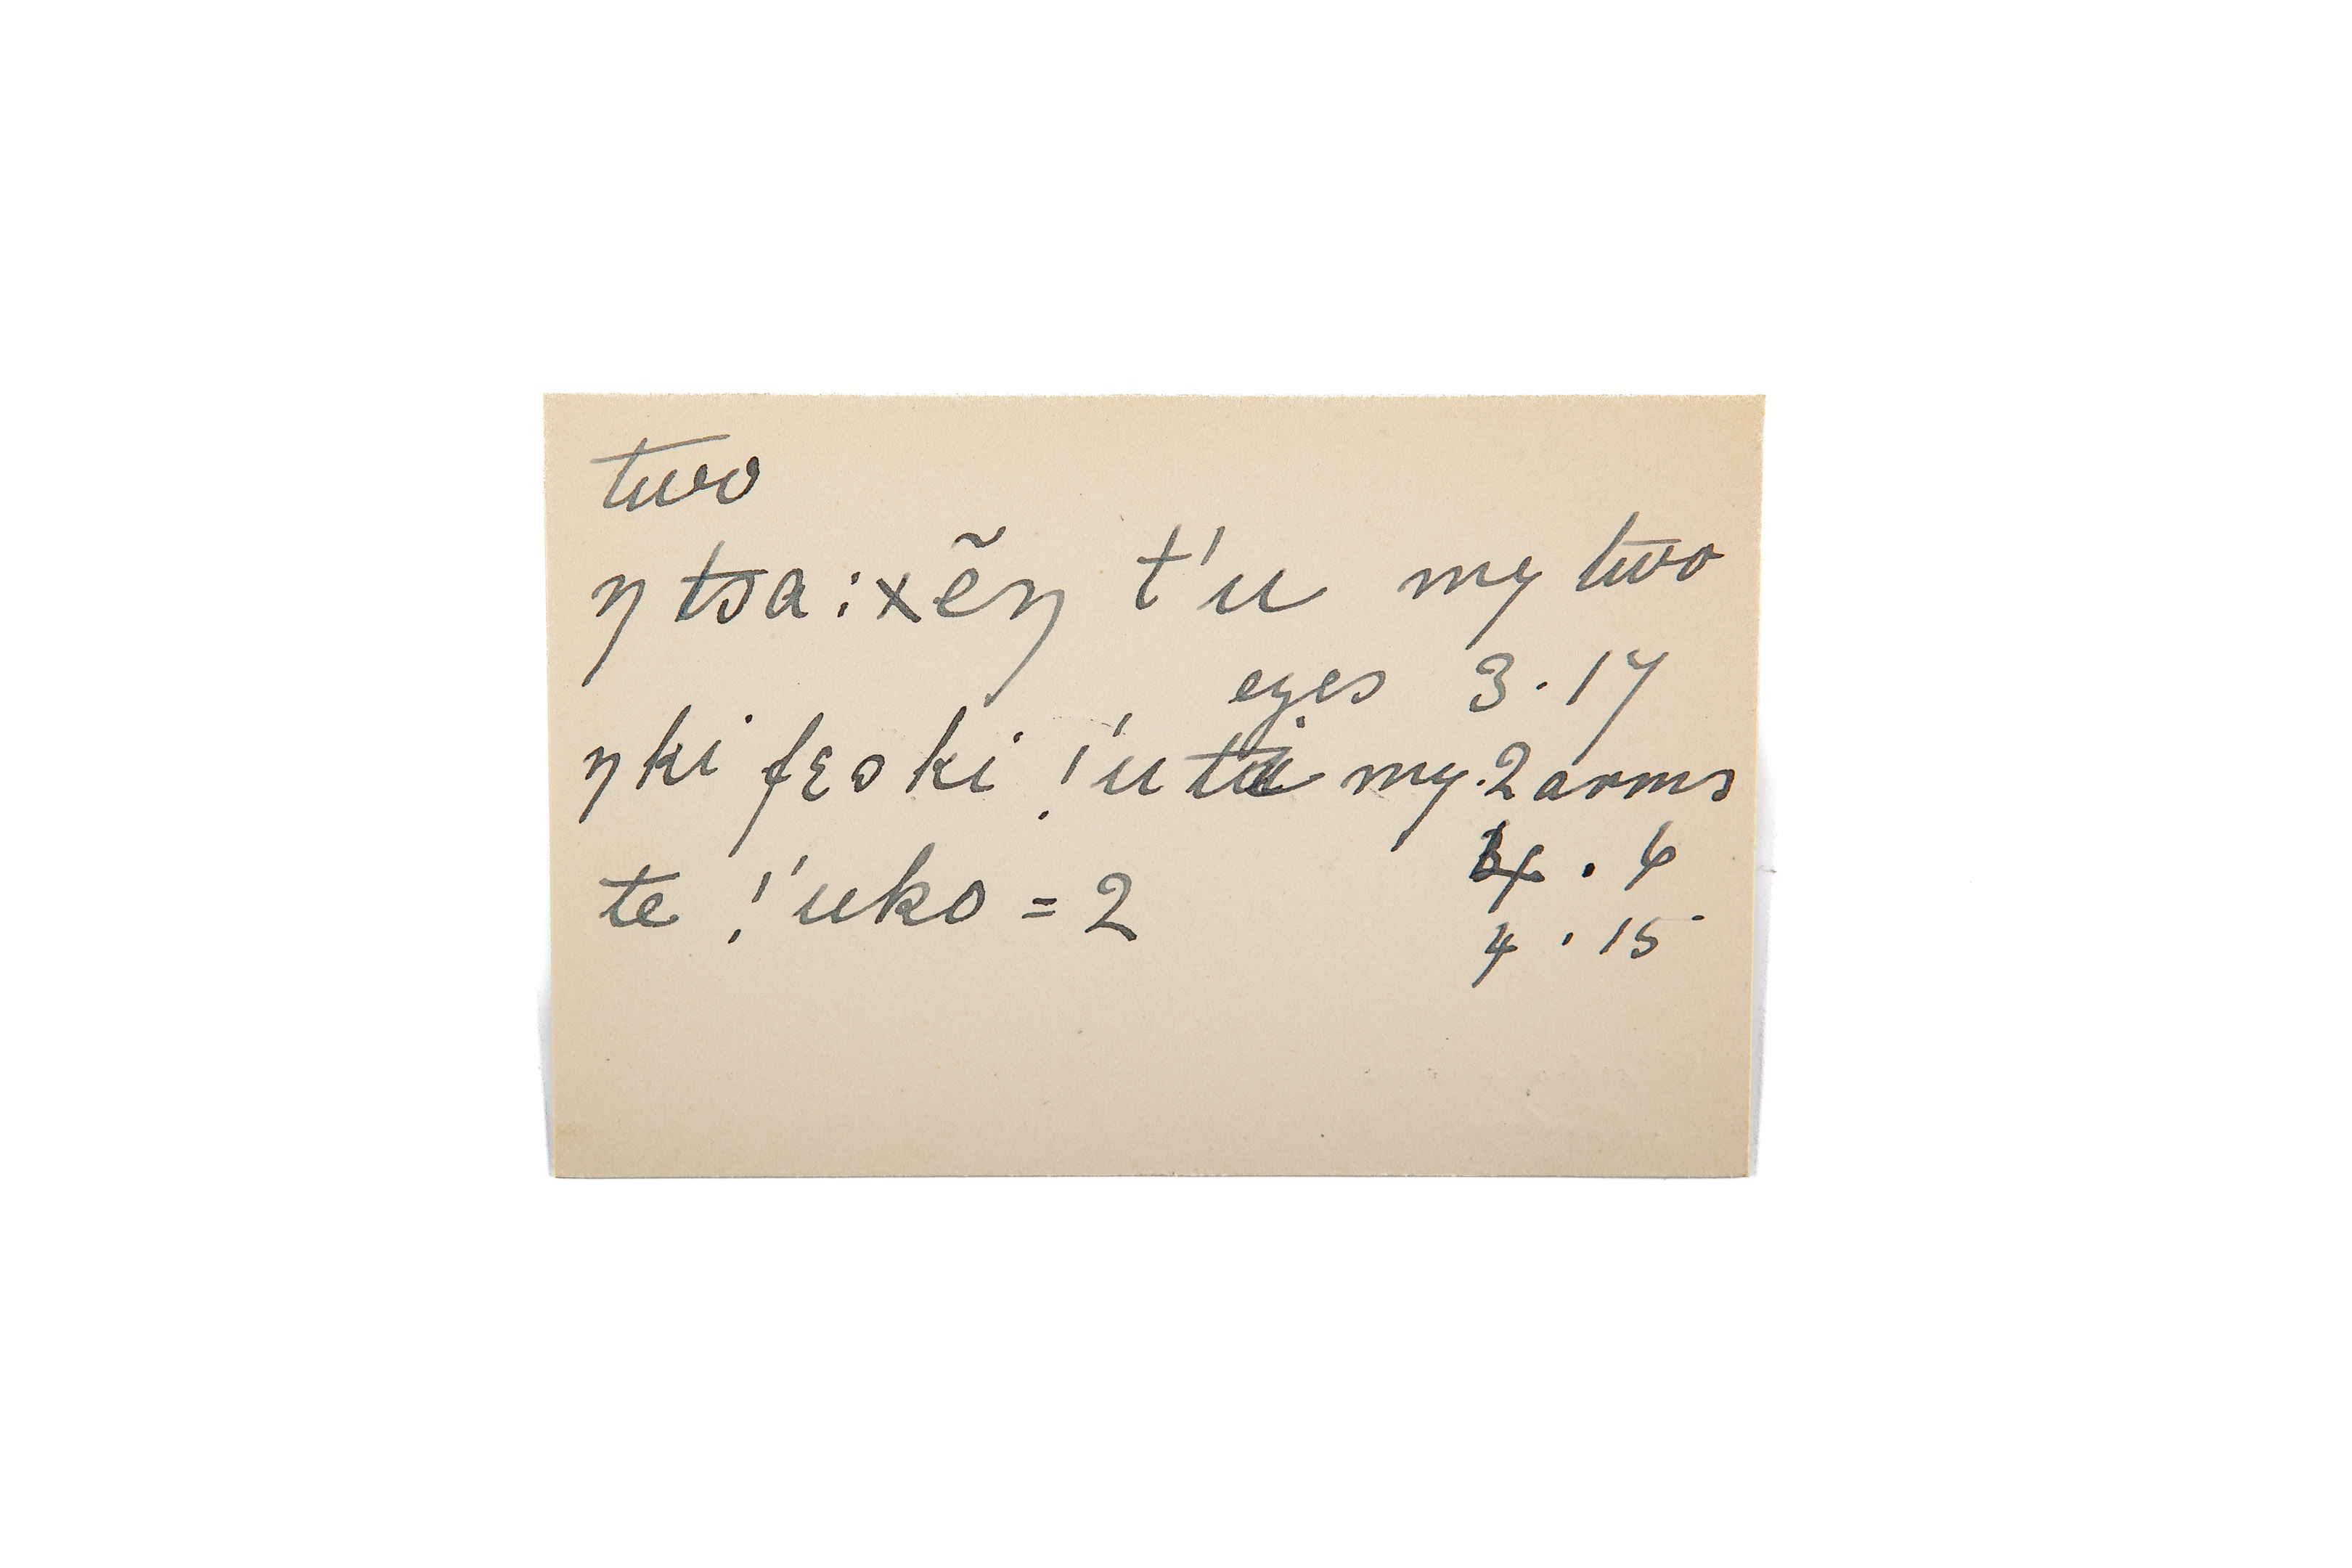 two
ŋ tsa:xẽŋ t'u my two
eyes 3.17
ŋki fɛski !'u my.2 arms
4.6
te !'uko = 2
4.15